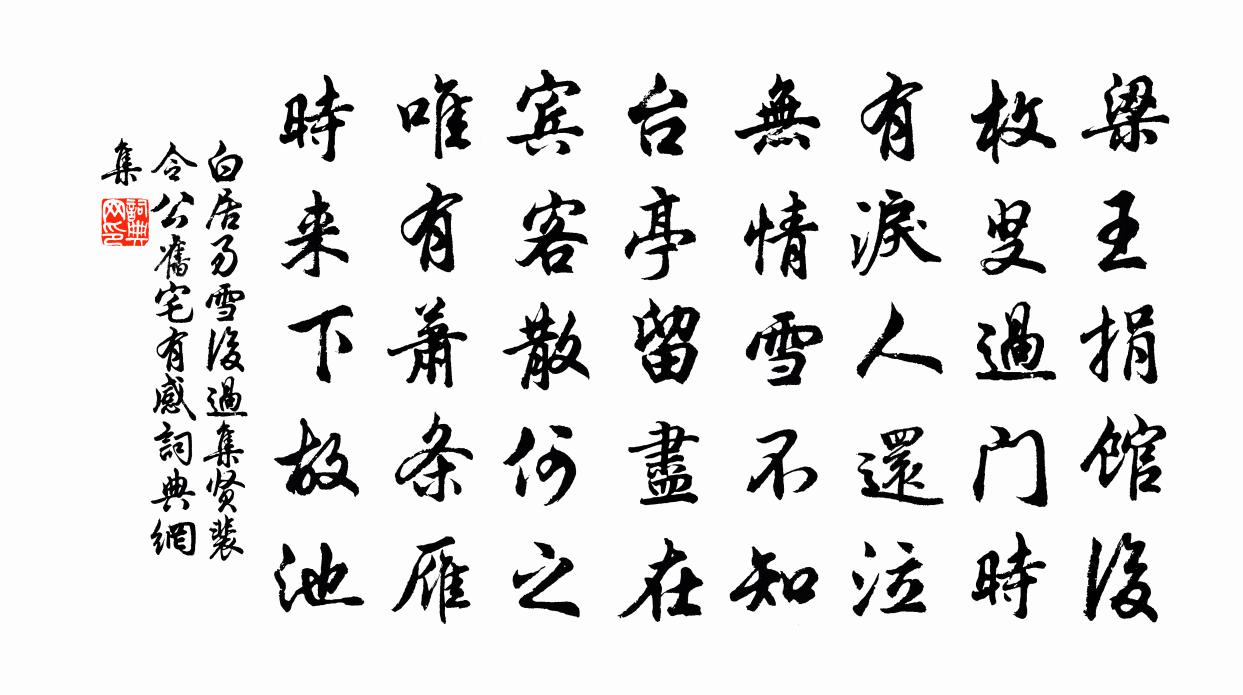 梁王捐馆後
枚叟過门時
有淚人還泣
無情雪不知
台亭留盡在
宾客散何之
唯有蕭条雁
時来下故池
白居易雪後過集贤裴
令公舊宅有感詞典網
集
詞典网印